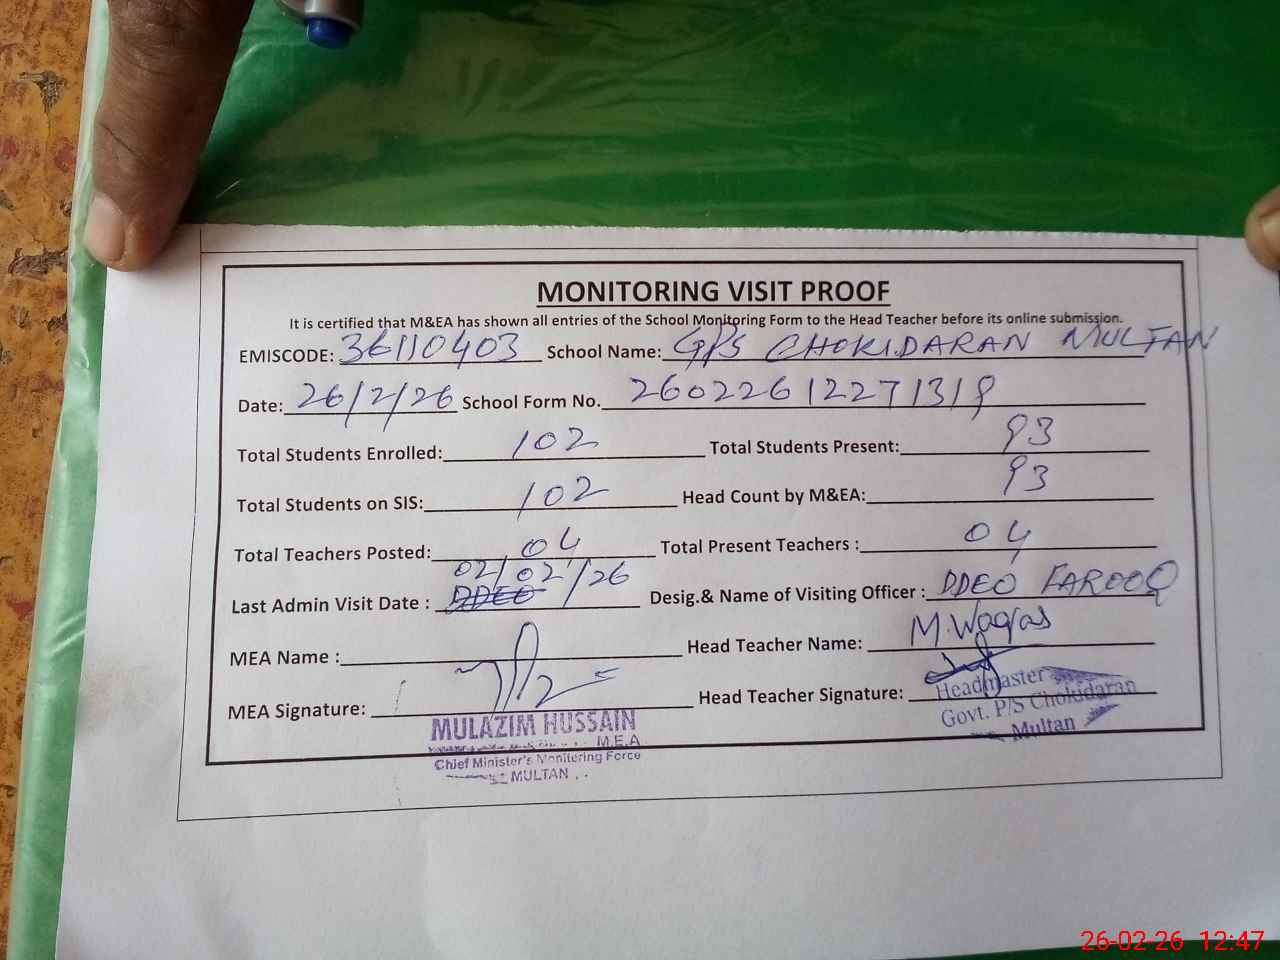 MONITORING VISIT PROOF
It is certified that M&EA has shown all entries of the School Monitoring Form to the Head Teacher before its online submission.
EMISCODE: 36110403 School Name: GPS CHOKIDARAN MULTAN
Date: 26/2/26 School Form No. 26022612271319
Total Students Enrolled: 102 Total Students Present: 93
Total Students on SIS: 102 Head Count by M&EA: 93
Total Teachers Posted: 04 Total Present Teachers : 04
Last Admin Visit Date : 02/02/26 Desig.& Name of Visiting Officer : DDEO FAROOQ
MEA Name : Head Teacher Name: M.Waqas
MEA Signature: Head Teacher Signature:
MULAZIM HUSSAIN
M.E.A
Chief Minister's Monitoring Force
MULTAN
Headmaster
Govt. P/S Chokidaran
Multan
26-02-26 12:47